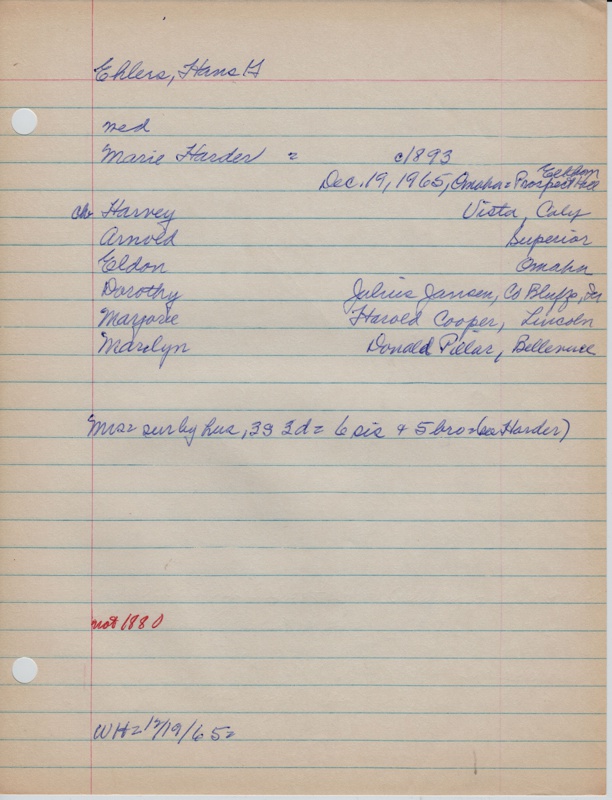 Ehlers, Hans H
med
Marie Harder = c/1893
Dec. 19, 1965, Omaha = Prospect Hill
ch Harvey Vista, Caly
Arnold Superior
Eldon Omaha
Dorothy Julius Jansen, Co Bluffs, Ia
Marjorie Harold Cooper, Lincoln
Marilyn Donald Pillar, Bellevue
Mrs = sur by hus, 3s 3d = 6 sis & 5 bro = (see Harder)
not 1880
WH = 12/19/65 =